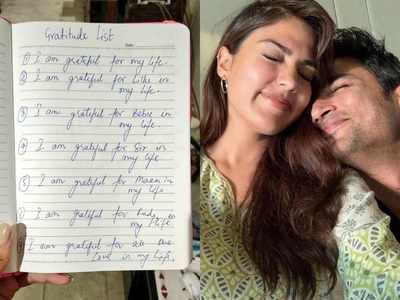 Gratitude List
Date:
① I am grateful for my life.
② I am grateful for Lillu in
my life.
③ I am grateful for Bebu in
my life.
④ I am grateful for Sir in
my life
⑤ I am grateful for Maam in
my life
I am grateful for in
my life.
I am grateful for all the
love in my life.